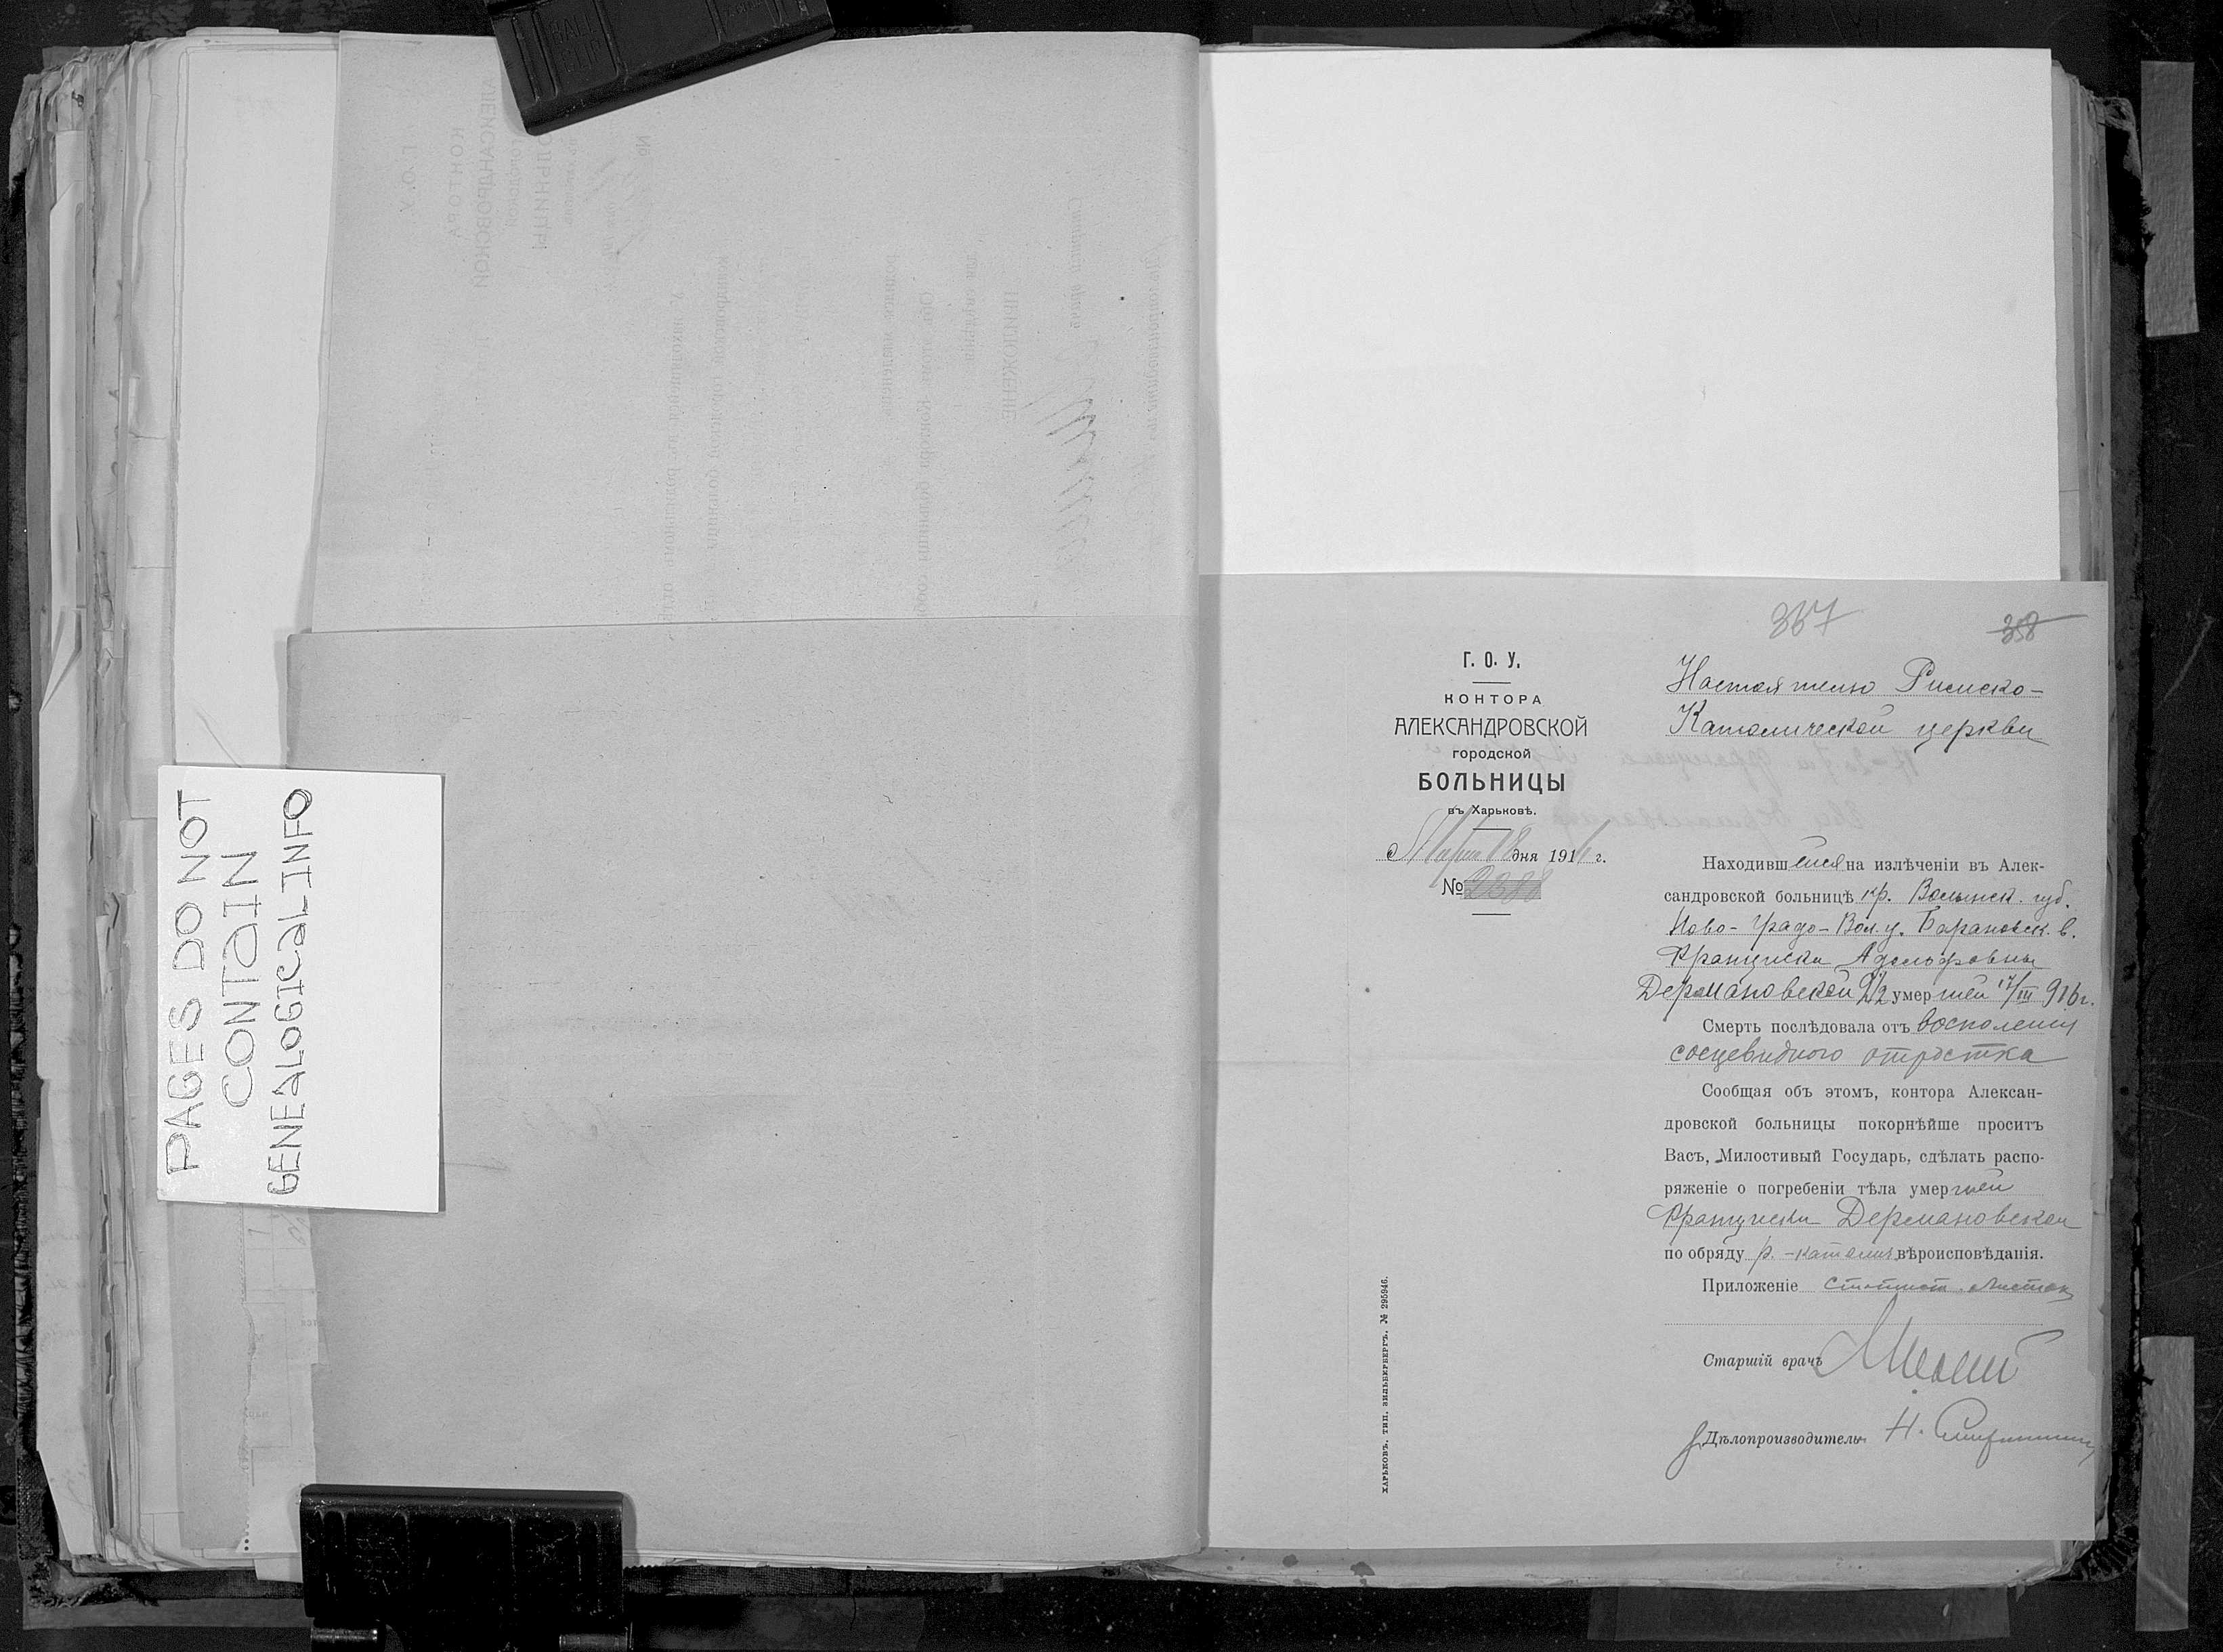 PAGES DO NOT
CONTAIN
GENEALOGICAL INFO
367
358
Г. О. У.
КОНТОРА
АЛЕКСАНДРОВСКОЙ
ГОРОДСКОЙ
БОЛЬНИЦЫ
въ Харьковѣ.
Марта 18 дня 1916 г.
№ 2388
Настоятелю Римско-
Католической церкви
Находившейся на излѣченіи въ Алек-
сандровской больницѣ кр. Волынск. губ.
Ново-Градо-Вол. у. Барановск. в.
Франциски Адольфовны
Дермановской 2 1/2 умершей 17/III 916 г.
Смерть послѣдовала отъ воспаления
сосцевидного отростка
Сообщая объ этомъ, контора Алексан-
дровской больницы покорнѣйше проситъ
Васъ, Милостивый Государь, сдѣлать распо-
ряженіе о погребеніи тѣла умершей
Франциски Дермановской
по обряду р.-католич. вѣроисповѣданія.
Приложеніе статист. листок
Старшій врачъ
Дѣлопроизводитель Н.
ХАРЬКОВЪ. ТИП. ЗИЛЬБЕРБЕРГЪ. № 295946.